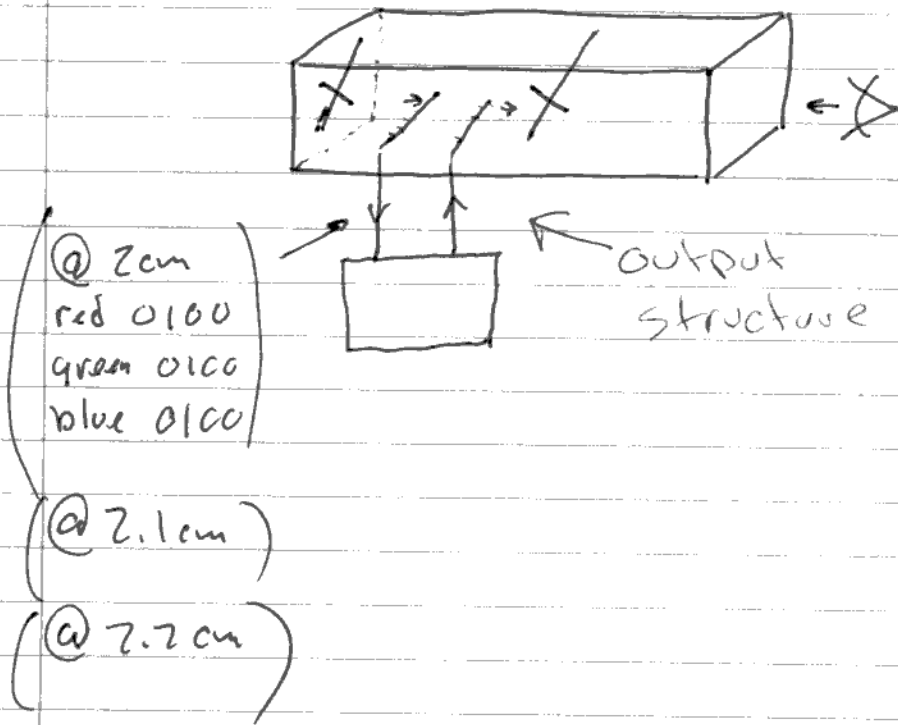 @ 2cm
red 0100
green 0100
blue 0100
output
structure
@ 2.1cm
@ 2.2cm